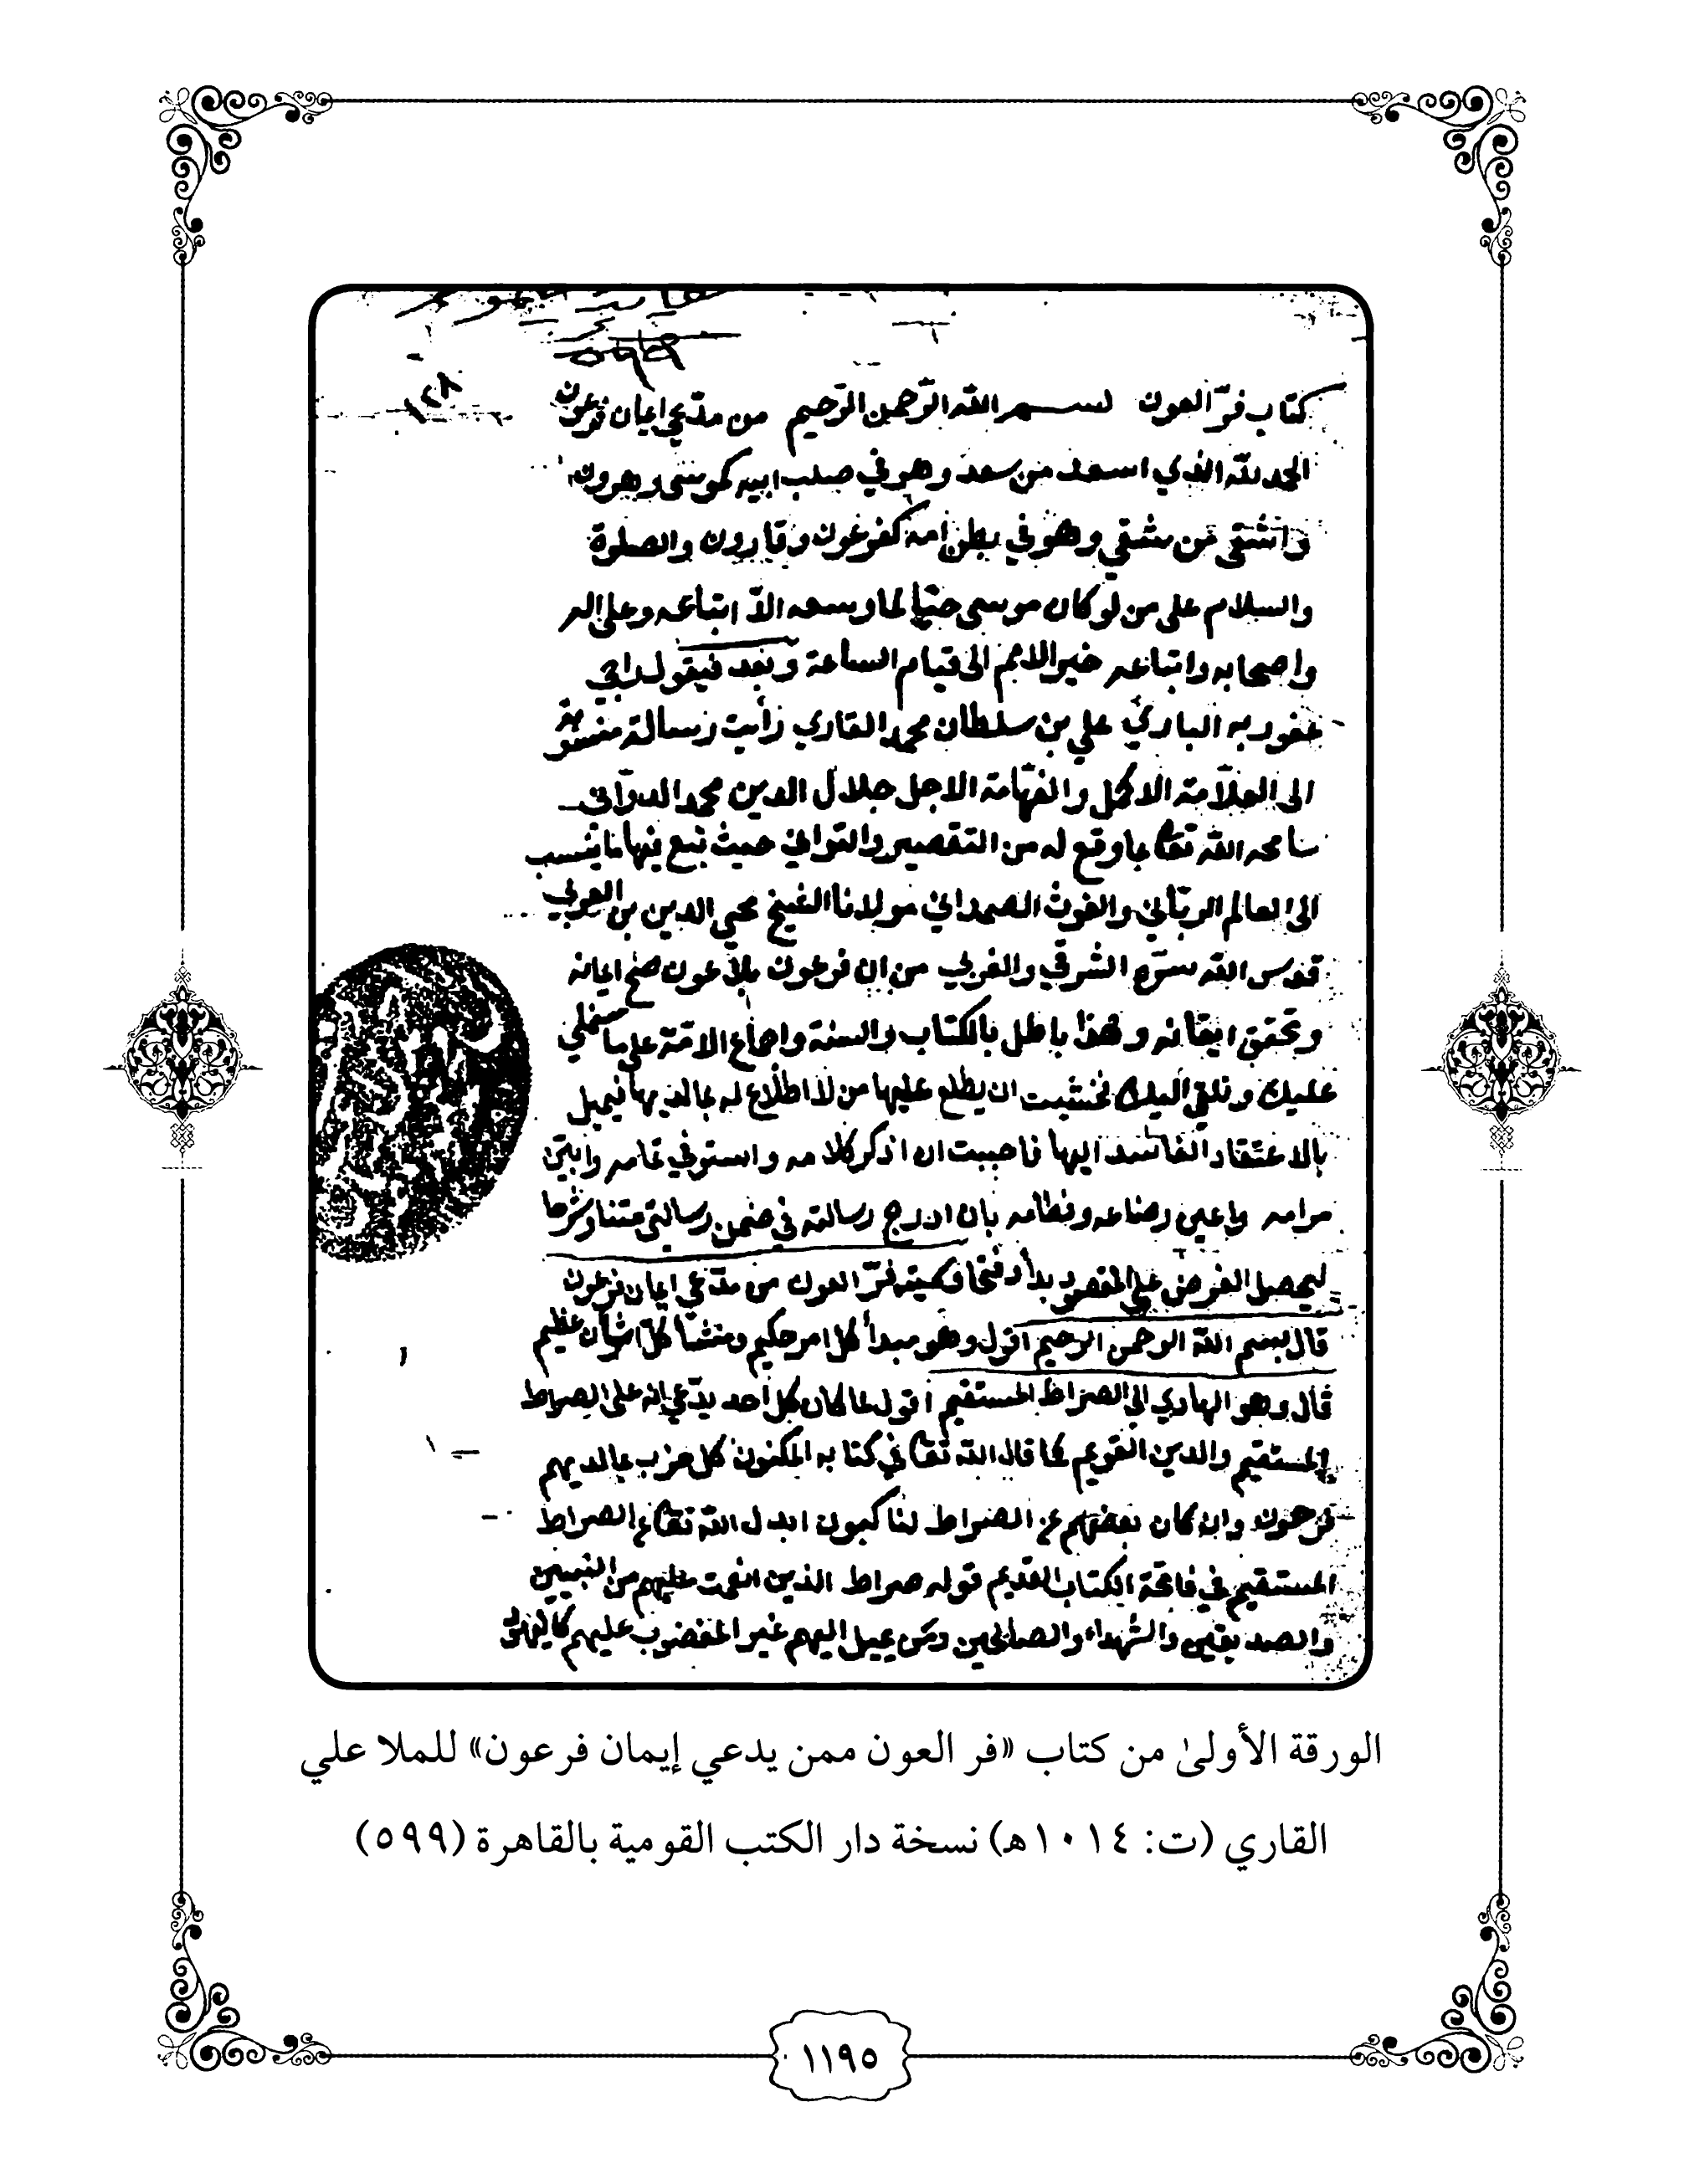 ٥٩٩
١٢٨
كتاب فرّ العون بسم الله الرّحمن الرّحيم من مدّعي ايمان فرعون
الحمد لله الذي اسعد من سعد وهو في صلب ابيه كموسى وهرون
واشقى من شقي وهو في بطن امه كفرعون وقارون والصلوة
والسلام على من لو كان موسى حيّا لما وسعه الاّ اتباعه وعلى اله
واصحابه واتباعه خير الامم الى قيام الساعة وبعد فيقول راجي
عفو ربه الباري علي بن سلطان محمد القاري رأيت رسالة منسوبة
الى العلاّمة الاكمل والفهّامة الاجل جلال الدين محمد الدوّاني
سامحه الله تعا بما وقع له من التقصير والتواني حيث تبع فيها ما ينسب
الى العالم الربّاني والغوث الصمداني مولانا الشيخ محيي الدين بن العربي
قدس الله سرّه الشرقي والغربي من ان فرعون بلا عون صح ايمانه
وتحقق ايقانه وهذا باطل بالكتاب والسنة واجماع الامّة على ما سنملي
عليك ونلقي اليك فخشيت ان يطلع عليها من لا اطلاع له بما لديها فيميل
بالاعتقاد الفاسد اليها فاحببت ان اذكر كلامه واستوفي تمامه وابيّن
مرامه واعين نظامه بان ادرج رسالته في ضمن رسالتي متنا وشرحا
ليحصل الغرض على المقصود وسميته فرّ العون من مدّعي ايمان فرعون
قال بسم الله الرحمن الرحيم اقول وهو مبدأ كل امر حكيم ومنشأ كلّ شان عظيم
قال وهو الهادي الى الصراط المستقيم اقول لما كان كل احد يدّعي انه على الصراط
المستقيم والدين القويم كما قال الله تعا في كتابه المكنون كل حزب بما لديهم
فرحون وان كان بعضهم عن الصراط لناكبون ابدل الله تعا الصراط
المستقيم في فاتحة الكتاب القديم قوله صراط الذين انعمت عليهم من النبيين
والصديقين والشهداء والصالحين ومن يميل اليهم غير المغضوب عليهم كاليهود
الورقة الأولىٰ من كتاب «فر العون ممن يدعي إيمان فرعون» للملا علي
القاري (ت: ١٠١٤هـ) نسخة دار الكتب القومية بالقاهرة (٥٩٩)
١١٩٥